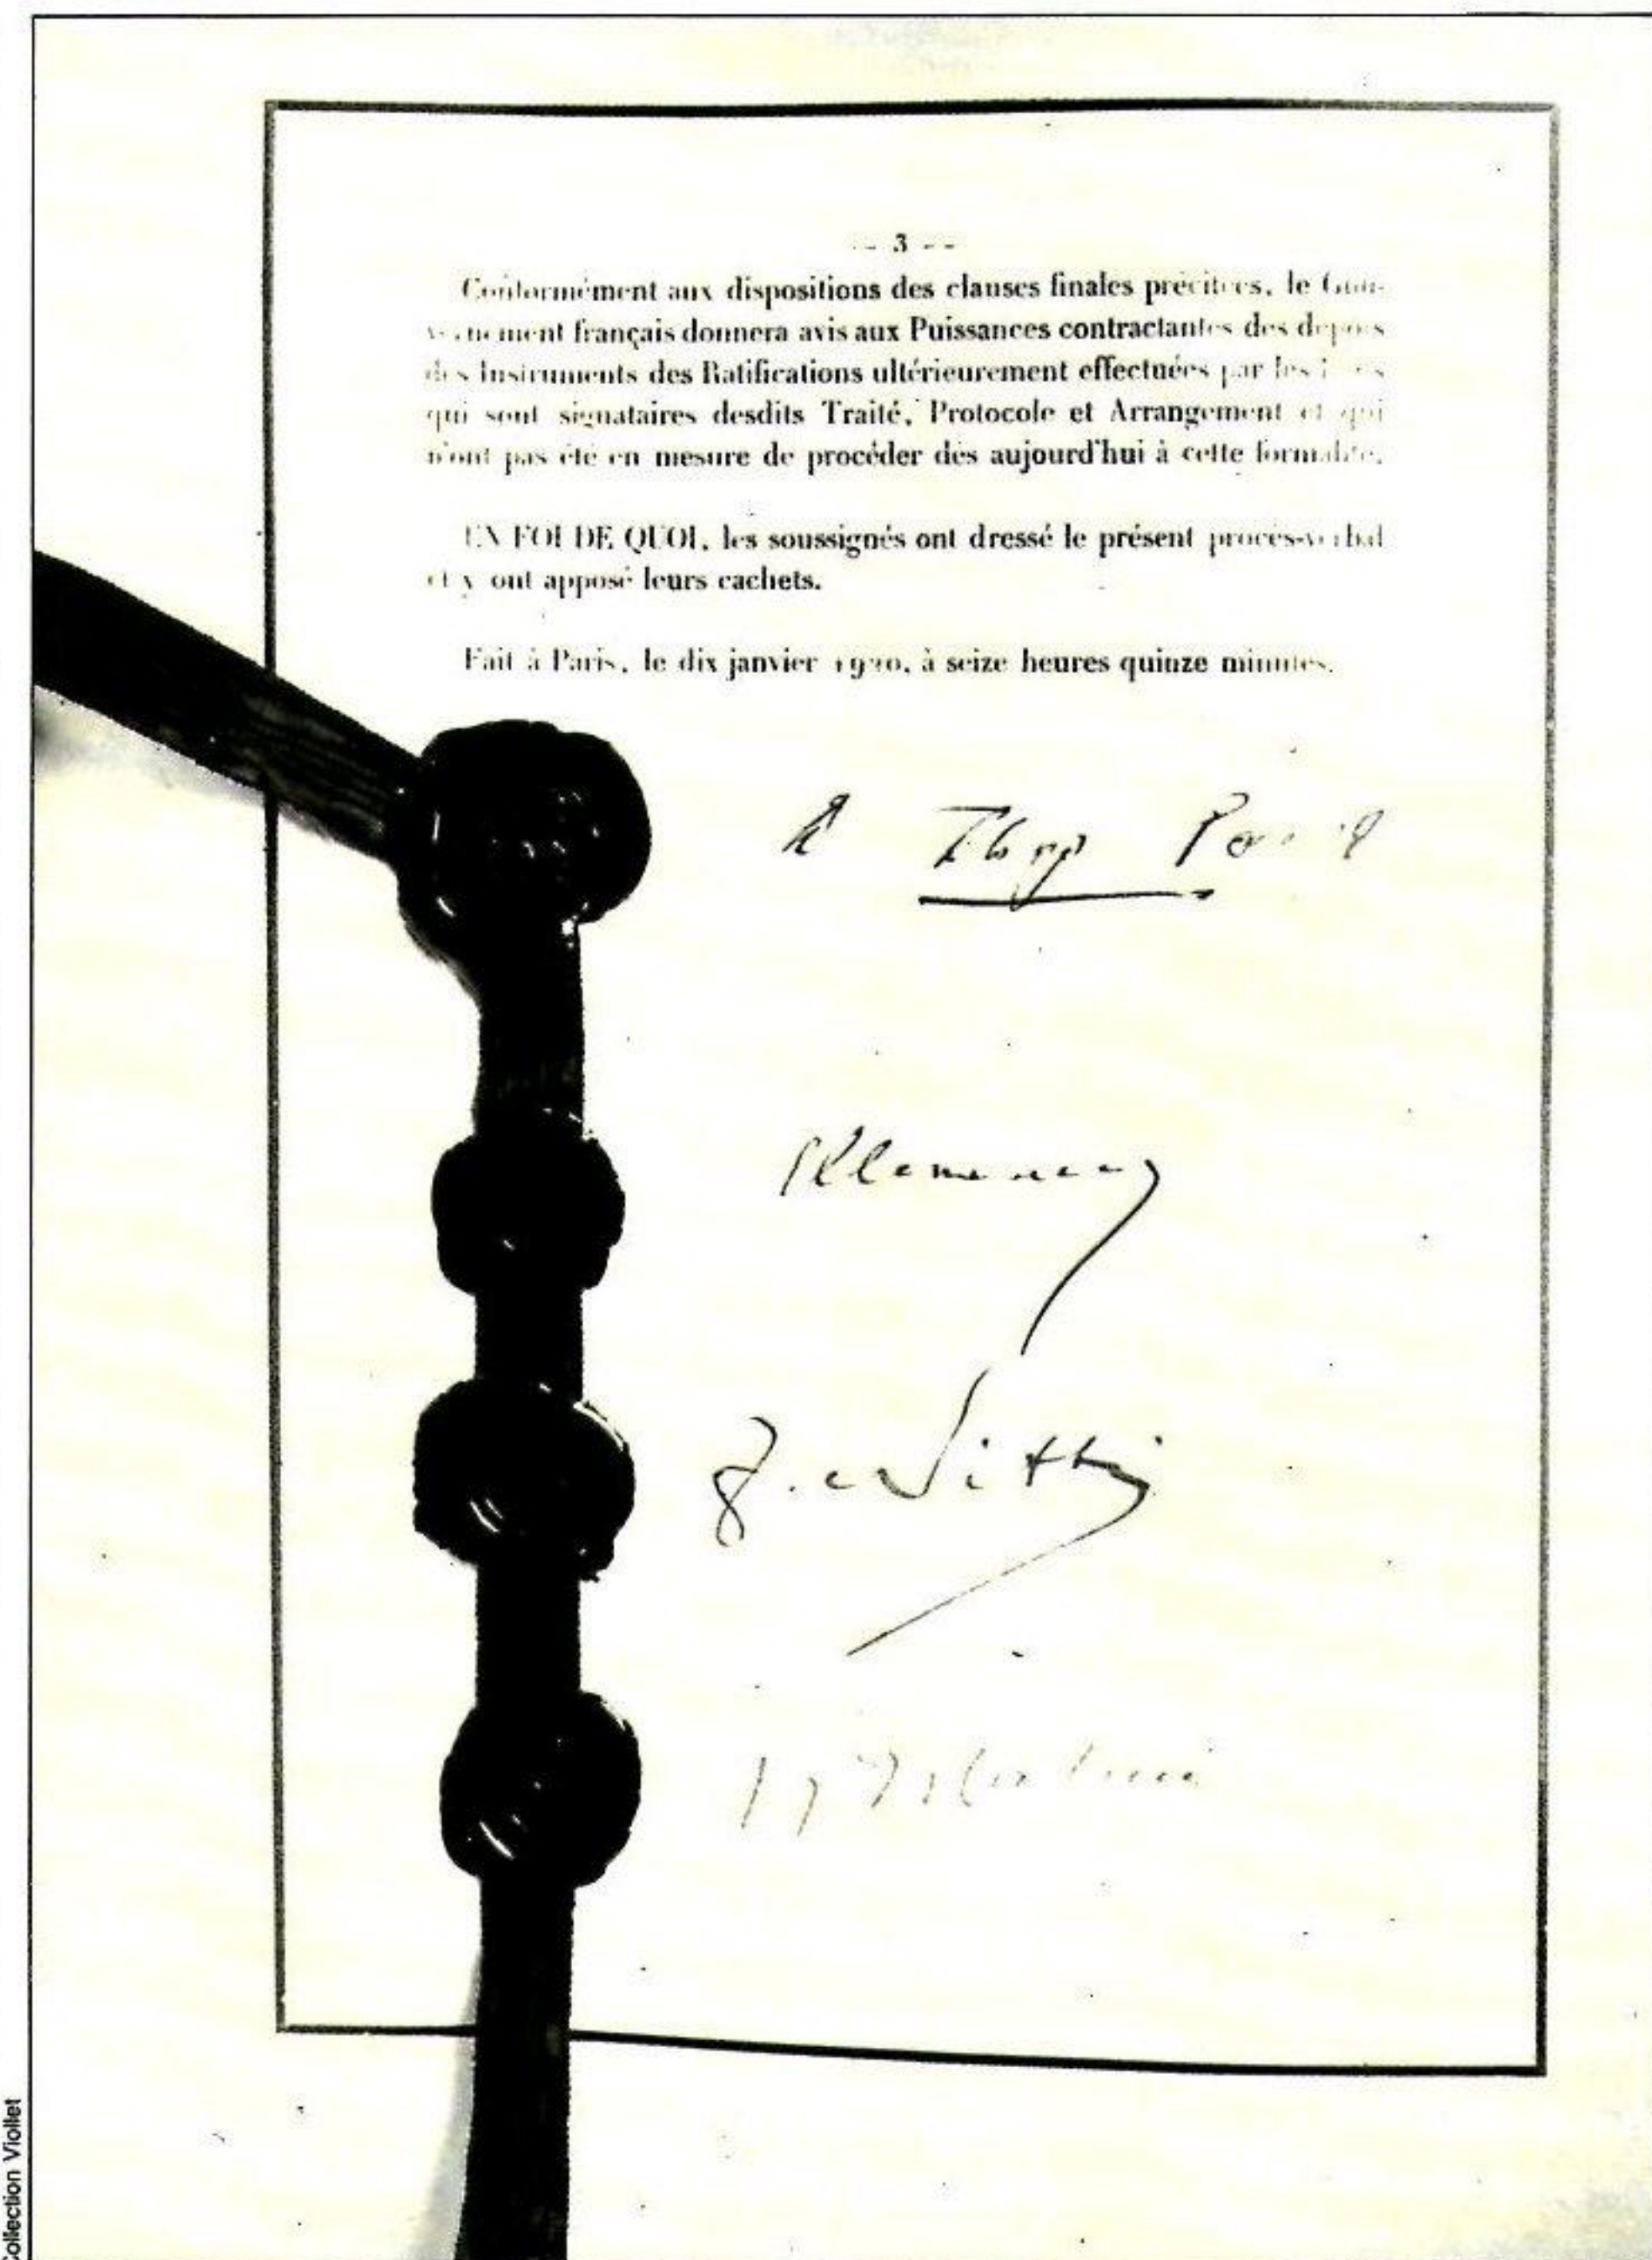 -- 3 --
Conformément aux dispositions des clauses finales précitées, le Gou-
vernement français donnera avis aux Puissances contractantes des dépôts
des Instruments des Ratifications ultérieurement effectuées par les
qui sont signataires desdits Traité, Protocole et Arrangement et qui
n'ont pas été en mesure de procéder dès aujourd'hui à cette formalité.
EN FOI DE QUOI, les soussignés ont dressé le présent procès-verbal
et y ont apposé leurs cachets.
Fait à Paris, le dix janvier 1920, à seize heures quinze minutes.
Collection Viollet